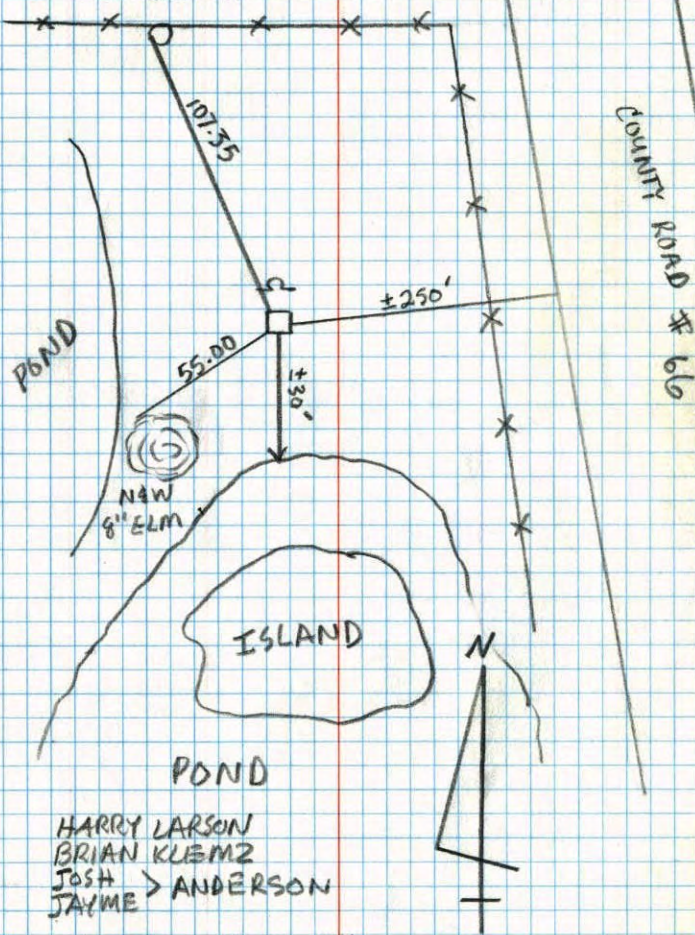 107.35
COUNTY ROAD # 66
±250'
POND
55.00
±30'
N&W
8" ELM
ISLAND
N
POND
HARRY LARSON
BRIAN KLEMZ
JOSH
JAYME > ANDERSON